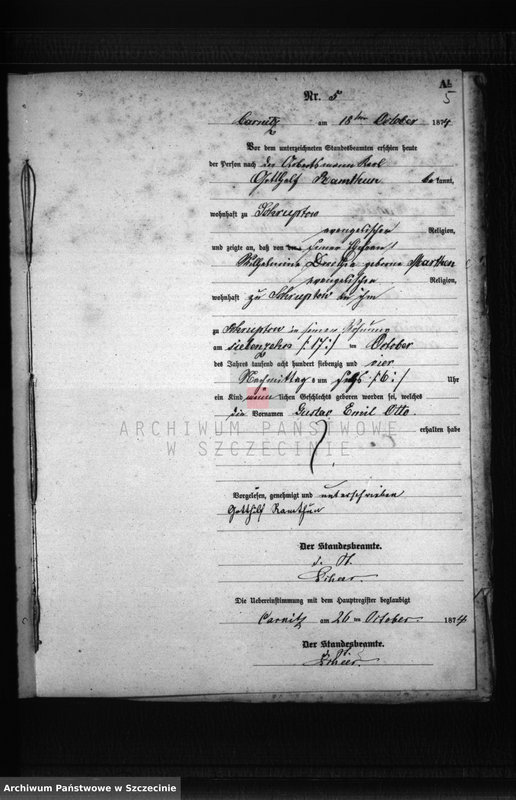 A.
5
Nr. 5
Carnitz am 18ten October 1874
Vor dem unterzeichneten Standesbeamten erschien heute
der Person nach der Arbeitsmann Karl
Gotthilf Ramthun bekannt,
wohnhaft zu Schruptow
evangelischer Religion,
und zeigte an, daß von seiner Ehefrau
Wilhelmine geborne
evangelischer Religion,
wohnhaft zu Schruptow bei ihm
zu Schruptow in seiner Wohnung
am siebenzehn /:17:/ ten October
des Jahres tausend acht hundert siebenzig und vier
Nachmittags um sechs /:6:/ Uhr
ein Kind männlichen Geschlechts geboren worden sei, welches
die Vornamen Gustav Emil Otto
erhalten habe
Vorgelesen, genehmigt und unterschrieben
Gotthilf Ramthun
Der Standesbeamte.
Die Uebereinstimmung mit dem Hauptregister beglaubigt
Carnitz am 26 ten October 1874
Der Standesbeamte.
ARCHIWUM PAŃSTWOWE
W SZCZECINIE
Archiwum Państwowe w Szczecinie